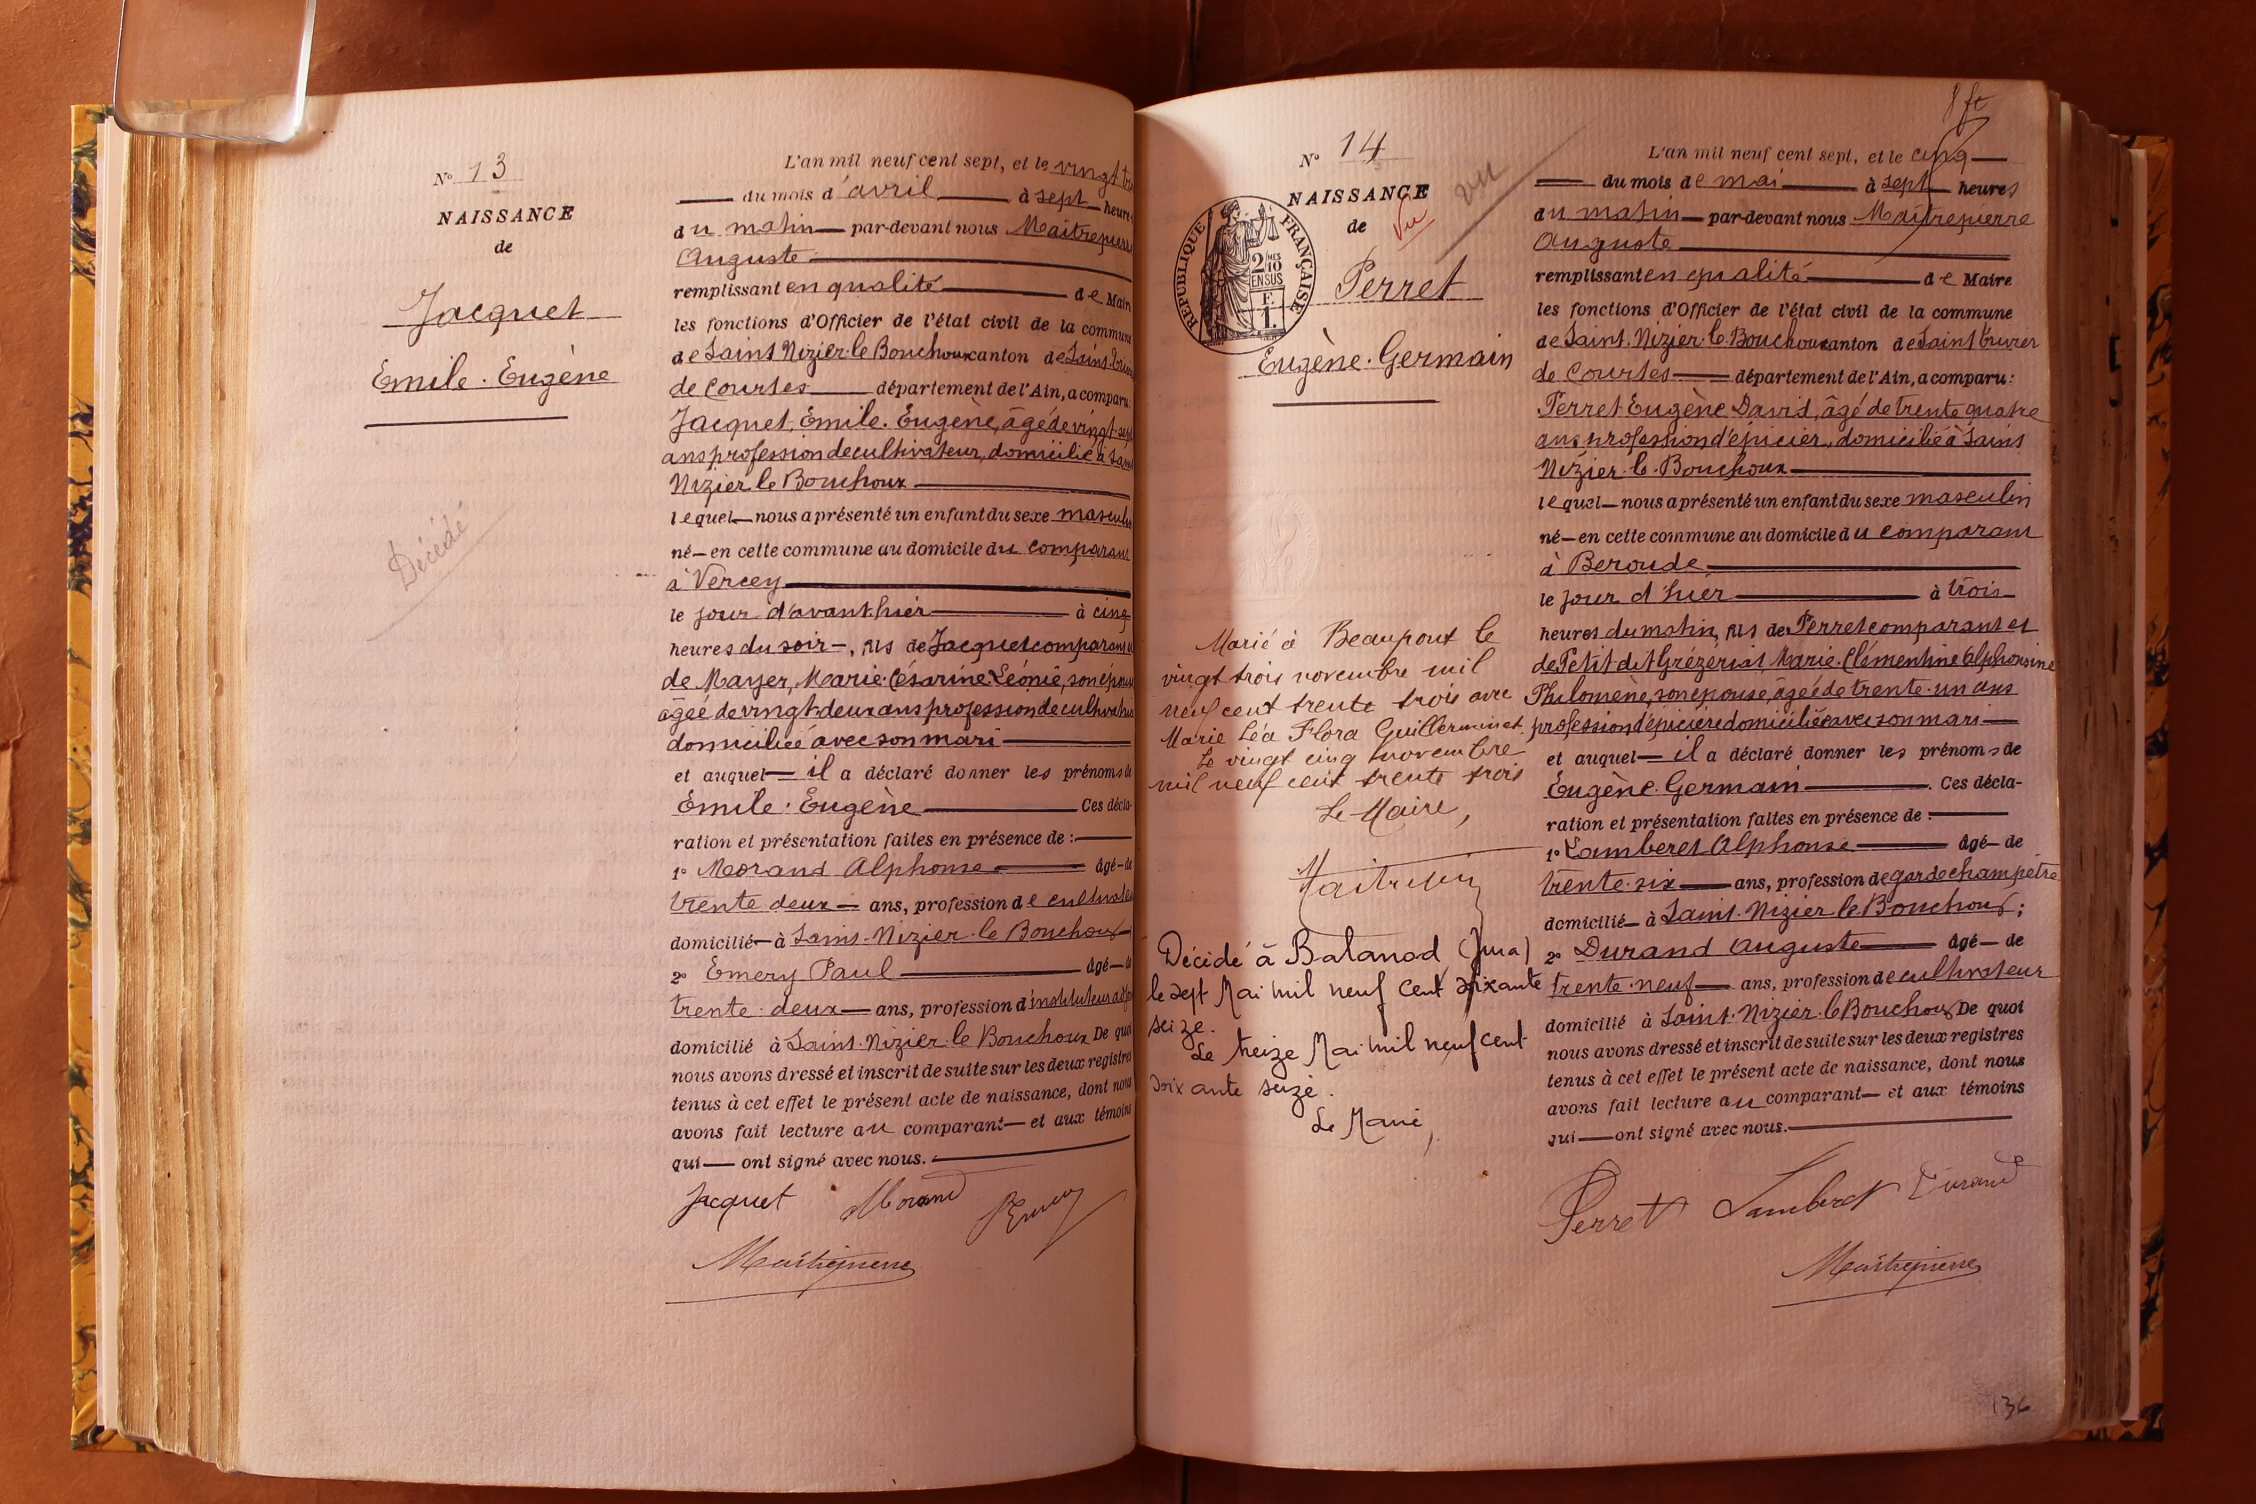 N° 13
NAISSANCE
de
Jacquet
Emile. Eugène
Décédé
L'an mil neuf cent sept, et le vingt
du mois d'avril à sept heures
du matin par-devant nous Maitrepierre
Auguste
remplissant en qualité de Maire
les fonctions d'Officier de l'état civil de la commune
de Saint Nizier-le Bouchoux canton de Saint
de Courtes département de l'Ain, a comparu:
Jacquet, Emile. Eugène, âgé de vingt-sept
ans profession de cultivateur, domicilié à Saint
Nizier le Bouchoux
lequel nous a présenté un enfant du sexe masculin
né en cette commune au domicile du comparant
à Vercey
le jour d'avant hier à cinq
heures du soir, fils de Jacquet comparant
de Mayer, Marie Césarine Léonie, son épouse
âgée de vingt-deux ans profession de cultivatrice
domiciliée avec son mari
et auquel il a déclaré donner les prénoms de
Emile. Eugène Ces décla-
ration et présentation faites en présence de :
1° Morand Alphonse âgé de
trente deux ans, profession de cultivateur
domicilié à Saint-Nizier-le Bouchoux
2° Emery Paul âgé de
trente deux ans, profession d'instituteur
domicilié à Saint-Nizier-le Bouchoux De quoi
nous avons dressé et inscrit de suite sur les deux registres
tenus à cet effet le présent acte de naissance, dont nous
avons fait lecture au comparant et aux témoins
qui ont signé avec nous.
Jacquet Morand Emery
Maitrepierre
N° 14
NAISSANCE
de
vu
Vu
REPUBLIQUE FRANÇAISE
2/10 EN SUS
Perret
Eugène. Germain
Marié à Beaupont le
vingt trois novembre mil
neuf cent trente trois avec
Marie Léa Flora Guillerminet.
Le vingt cinq novembre
mil neuf cent trente trois
Le Maire,
Décédé à Balanod (Jura)
le sept Mai mil neuf cent soixante
seize.
Le treize Mai mil neuf cent
soixante seize.
Le Maire,
L'an mil neuf cent sept, et le cinq
du mois de mai à sept heures
du matin par-devant nous Maitrepierre
Auguste
remplissant en qualité de Maire
les fonctions d'Officier de l'état civil de la commune
de Saint-Nizier-le-Bouchoux canton de Saint Trivier
de Courtes département de l'Ain, a comparu:
Perret Eugène David, âgé de trente quatre
ans profession d'épicier, domicilié à Saint
Nizier-le-Bouchoux
lequel nous a présenté un enfant du sexe masculin
né en cette commune au domicile du comparant
à Beroude
le jour d'hier à trois
heures du matin, fils de Perret comparant et
de Petit dit Grézériat Marie-Clémentine Alphonsine
Philomène, son épouse, âgée de trente-un ans
profession d'épicière domiciliée avec son mari
et auquel il a déclaré donner les prénoms de
Eugène. Germain. Ces décla-
ration et présentation faites en présence de :
1° Lamberet Alphonse âgé de
trente-six ans, profession de garde champêtre
domicilié à Saint-Nizier le Bouchoux;
2° Durand Auguste âgé de
trente-neuf ans, profession de cultivateur
domicilié à Saint-Nizier-le Bouchoux De quoi
nous avons dressé et inscrit de suite sur les deux registres
tenus à cet effet le présent acte de naissance, dont nous
avons fait lecture au comparant et aux témoins
qui ont signé avec nous.
Perret Lamberet Durand
Maitrepierre
136